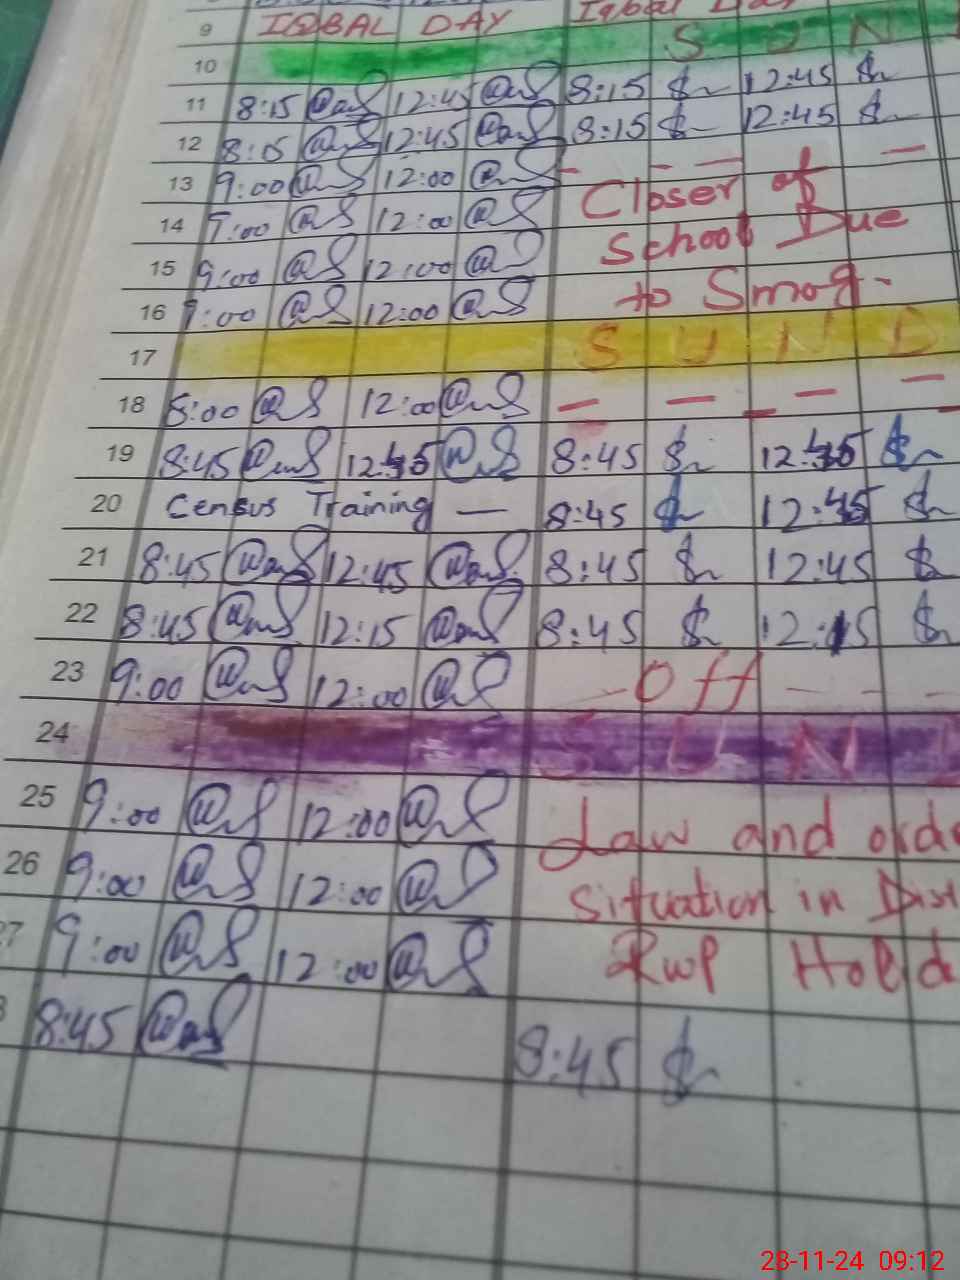 9 IQBAL DAY Iqbal Day
10 S U N
11 8:15 12:45 8:15 12:45
12 8:15 12:45 8:15 12:45
13 9:00 12:00 - - - -
Closer of
14 9:00 12:00
School Due
15 9:00 12:00
to Smog.
16 9:00 12:00
17 S U N D
18 8:00 12:00 - - - -
19 8:45 12:45 8:45 12:45
20 Census Training — 8:45 12:45
21 8:45 12:45 8:45 12:45
22 8:45 12:15 8:45 12:15
23 9:00 12:00 - Off - - -
24 S U N
25 9:00 12:00 Law and orde
26 9:00 12:00 Situation in Dist
27 9:00 12:00 Rwp Hold
8 8:45 8:45
28-11-24 09:12